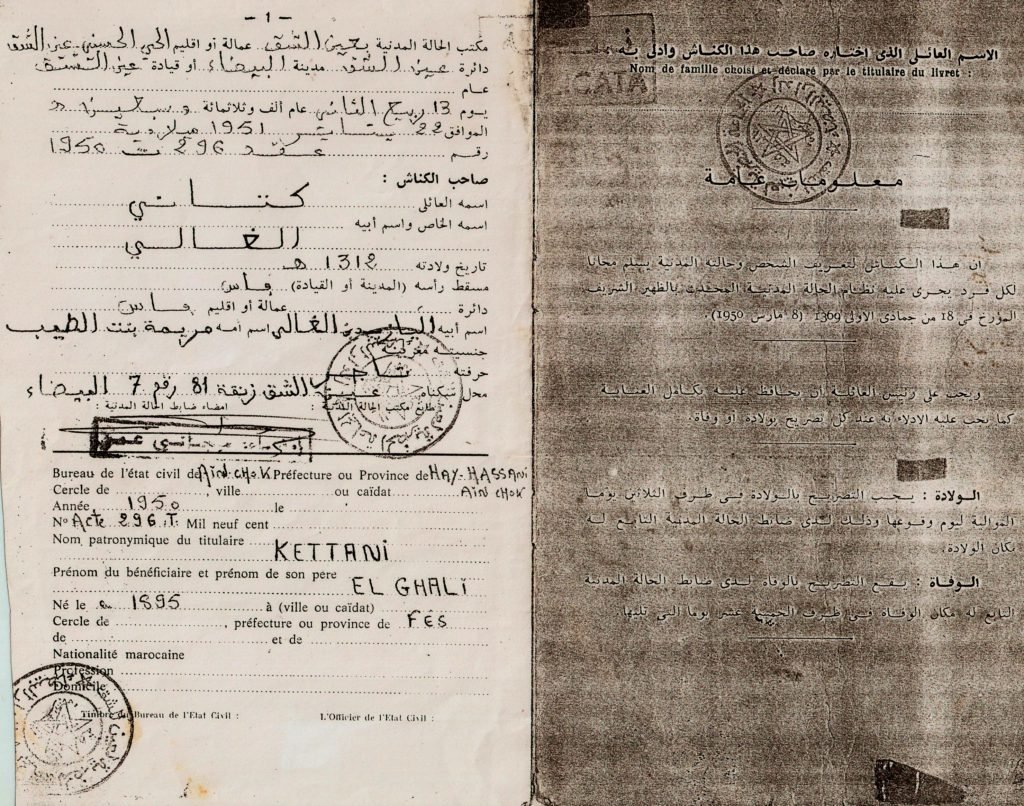 - 1 -
مكتب الحالة المدنية بعين الشق عمالة أو اقليم الحي الحسني عين الشق
دائرة عين الشق مدينة البيضاء أو قيادة عين الشق
عام
يوم 13 ربيع الثاني عام ألف وثلاثمائة و سبعين
الموافق 22 يناير 1951 ميلادية
رقم عقد 296 ت 1950
صاحب الكناش :
اسمه العائلى كتاني
اسمه الخاص واسم أبيه
الغالي
تاريخ ولادته 1312 هـ
مسقط رأسه (المدينة أو القيادة) فاس
دائرة عمالة أو اقليم فاس
اسم أبيه بن الغالي اسم أمه مريمة بنت الطيب
جنسيته مغربية
حرفته تاجر
محل سكناه عين الشق زنقة 81 رقم 7 البيضاء
طابع مكتب الحالة المدنية : امضاء ضابط الحالة المدنية :
Bureau de l'état civil de AIN CHOK Préfecture ou Province de HAY-HASSANI
Cercle de , ville ou caïdat AIN CHOK
Année 1950 le
N° Acte 296 T. Mil neuf cent
Nom patronymique du titulaire
KETTANI
Prénom du bénéficiaire et prénom de son père
EL GHALI
Né le en 1895 à (ville ou caïdat)
Cercle de , préfecture ou province de FES
de et de
Nationalité marocaine
Profession
Domicile
Timbre du Bureau de l'Etat Civil : L'Officier de l'Etat Civil :
CATA
الاسم العائلى الذى اختاره صاحب هذا الكناش وأدلى به
Nom de famille choisi et déclaré par le titulaire du livret :
معلومات عامة
ان هذا الكناش لتعريف الشخص وحالته المدنية يسلم مجانا
لكل فرد يجرى عليه نظام الحالة المدنية المحدث بالظهير الشريف
المؤرخ فى 18 من جمادى الاولى 1369 (8 مارس 1950).
ويجب على رئيس العائلة أن يحافظ عليه بكامل العناية
كما يجب عليه الادلاء به عند كل تصريح بولادة أو وفاة.
الولادة : يجب التصريح بالولادة فى ظرف الثلاثين يوما
الموالية ليوم وقوعها وذلك لدى ضابط الحالة المدنية التابع له
مكان الولادة.
الوفاة : يقع التصريح بالوفاة لدى ضابط الحالة المدنية
التابع له مكان الوفاة فى ظرف الخمسة عشر يوما التى تليها.